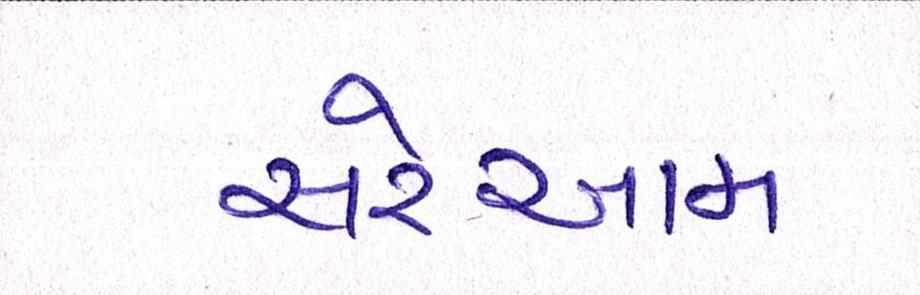 સરેઆમ